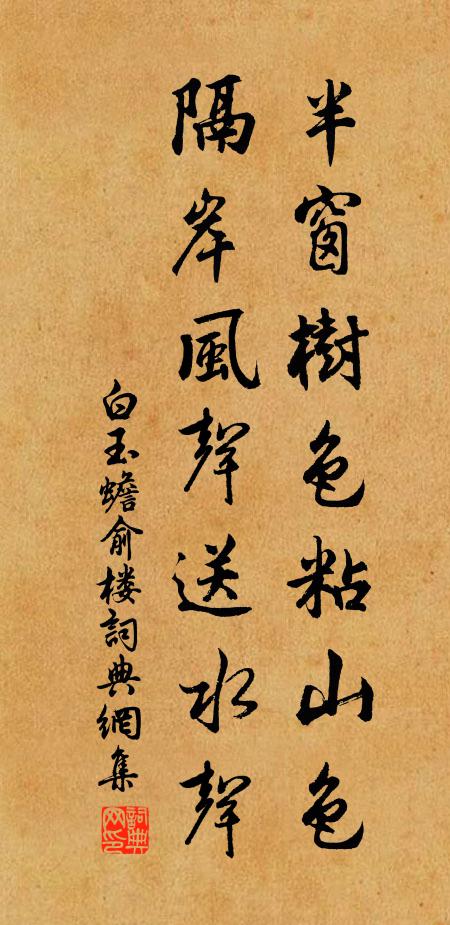 半窗樹色粘山色
隔岸風聲送水聲
白玉蟾俞楼詞典網集
詞典網印